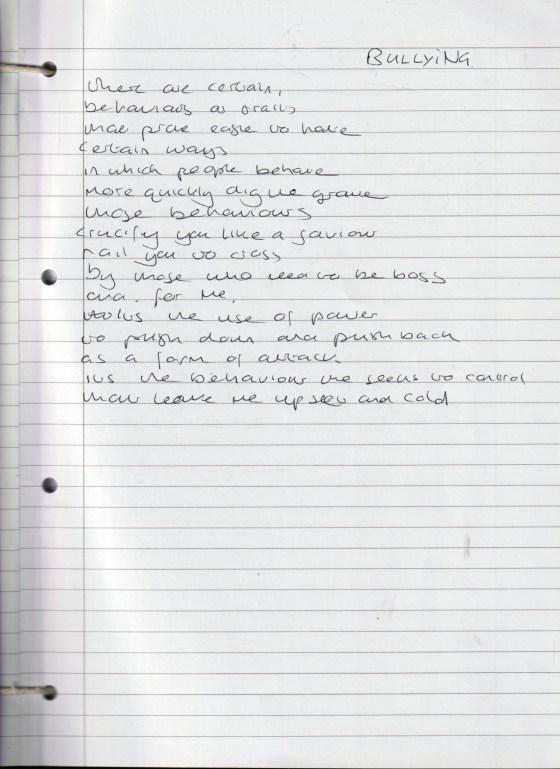 BULLYiNG
there are certain,
behaviours or traits
that prove easie to have
certain ways
in which people behave
more quickly dig the grave
those behaviours
crucify you like a saviour
nail you to cross
by those who need to be boss
and, for me,
its the use of power
to push down and push back
as a form of attack
its the behaviour the seems to control
that leave me upset and cold